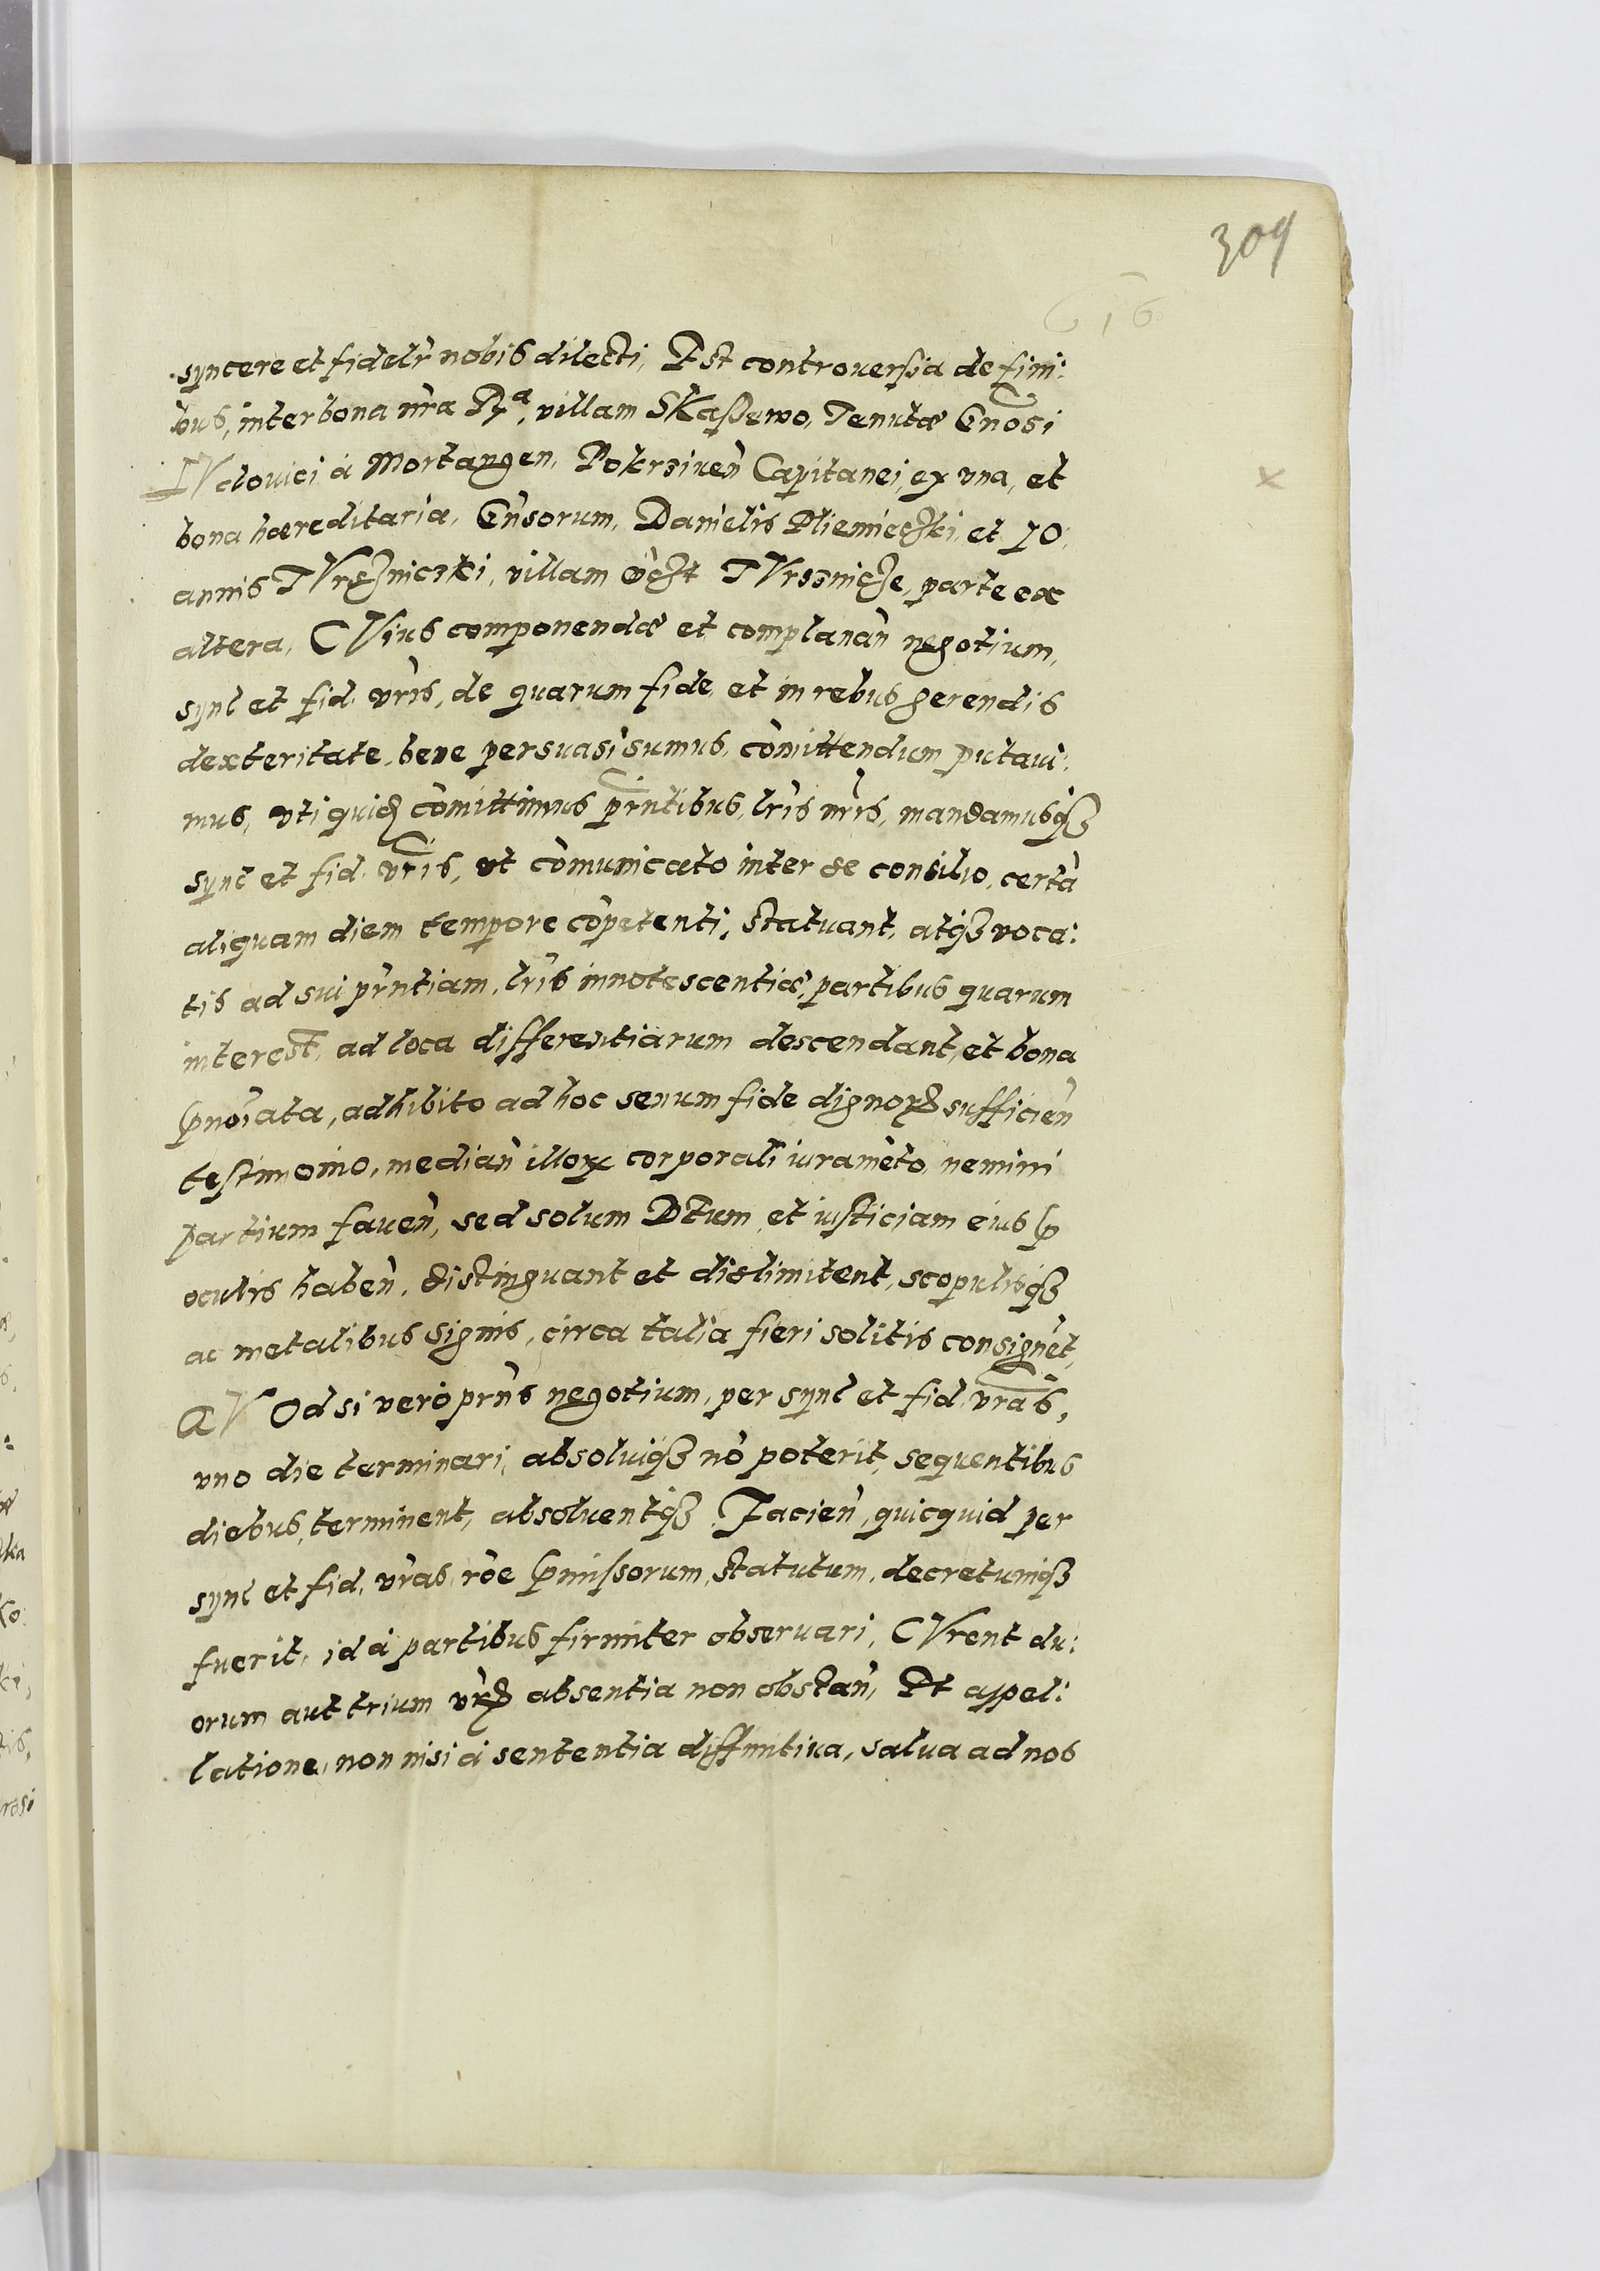 309
616
syncere et fidelr nobis dilecti, Est controuersia de fini:
bus, inter bona nra Ra, villam Skaßewo, Tenutæ Gnosi
IVdouici à Mortangen, Pokrsiuen Capitanei, ex vna, et
bona hæreditaria, Gnsorum, Danielis Pliemięczki, et JO,
annis TVrzniczki, villam vczt TVrssnicze, parte ex
altera, CVius componendæ et complanan negotium,
synl et fid. vris, de quarum fide, et in rebus gerendis
dexteritate, bene persuasi sumus, comittendum putaui:
mus, vti quidem comittimus prntibus, lris nris, mandamusq3
synl et fid. vris, vt comunicato inter se consilio, certa
aliquam diem tempore copetenti, statuant, atq3 voca:
tis ad sui prntiam, lris innotescentiæ, partibus quarum
interest, ad loca differentiarum descendant, et bona
pnoiata, adhibito ad hoc senum fide dignor sufficien
testimonio, median illor corporali iurameto, nemini
partium fauen, sed solum Dtum, et iusticiam eius p
oculis haben, distinguant et dislimitent, scopulisq3
ac metalibus signis, circa talia fieri solitis consignet,
QVOd si vero prns negotium, per synl et fid. vras,
vno die terminari, absoluiq3 no poterit, sequentibus
diebus, terminent, absoluentq3 Facien, quicquid per
synl et fid. vras, roe pmissorum, statutum, decretumq3
fuerit, id à partibus firmiter obseruari, CVrent du:
orum aut trium vrm absentia non obstan, Et appel:
latione, non nisi à sententia diffinitiua, salua ad nos